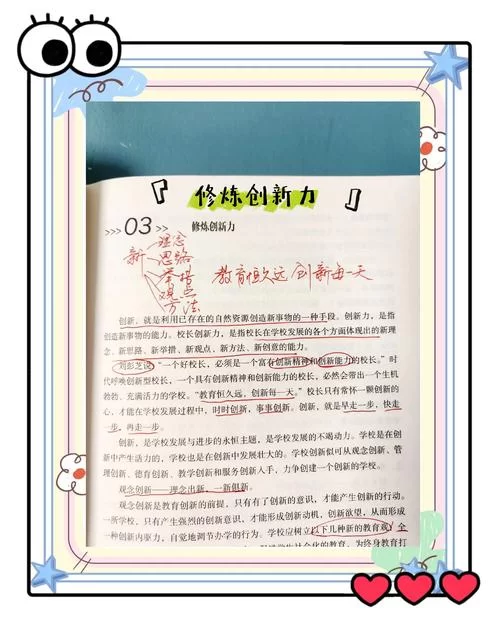 『修炼创新力』
>>> 03 >> 修炼创新力
新
理念
思路
举措
观点
方法
教育恒久远 创新每一天
创新，就是利用已存在的自然资源创造新事物的一种手段。创新力，是指
创造新事物的能力。校长创新力，是指校长在学校发展的各个方面体现出的新理
念、新思路、新举措、新观点、新方法、新创意的能力。
刘彭芝说：“一个好校长，必须是一个富有创新精神和创新能力的校长。”时
代呼唤创新型校长，一个具有创新精神和创新能力的校长，必然会带出一个生机
勃勃、充满活力的学校。“教育恒久远，创新每一天。”校长只有常怀一颗创新的
心，才能在学校发展过程中，时时创新，事事创新。创新，就是早走一步，快走
一步，再走一步。
创新，是学校发展与进步的永恒主题，是学校发展的不竭动力。学校是在创
新中产生活力的，学校也是在创新中发展壮大的。学校创新似可从观念创新、管
理创新、德育创新、教学创新和服务创新入手，力争创建一个创新的学校。
观念创新——理念出新，一新俱新。
观念创新是教育创新的前提，只有有了创新的意识，才能产生创新的行动。
一所学校，只有产生强烈的创新意识，才能形成创新动机，创新欲望，从而形成
一种创新内驱力，自觉地调节办学的行为。学校应树立以下几种新的教育观：全
社会化的教育，为终身教育打